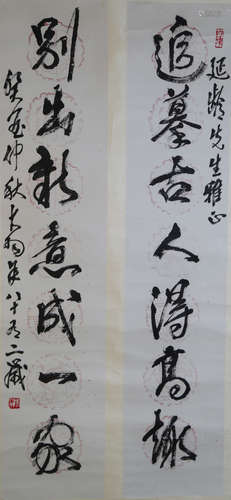 延齡先生雅正
追摹古人得高趣
別出新意成一家
癸亥仲秋大翔年八十有二歲